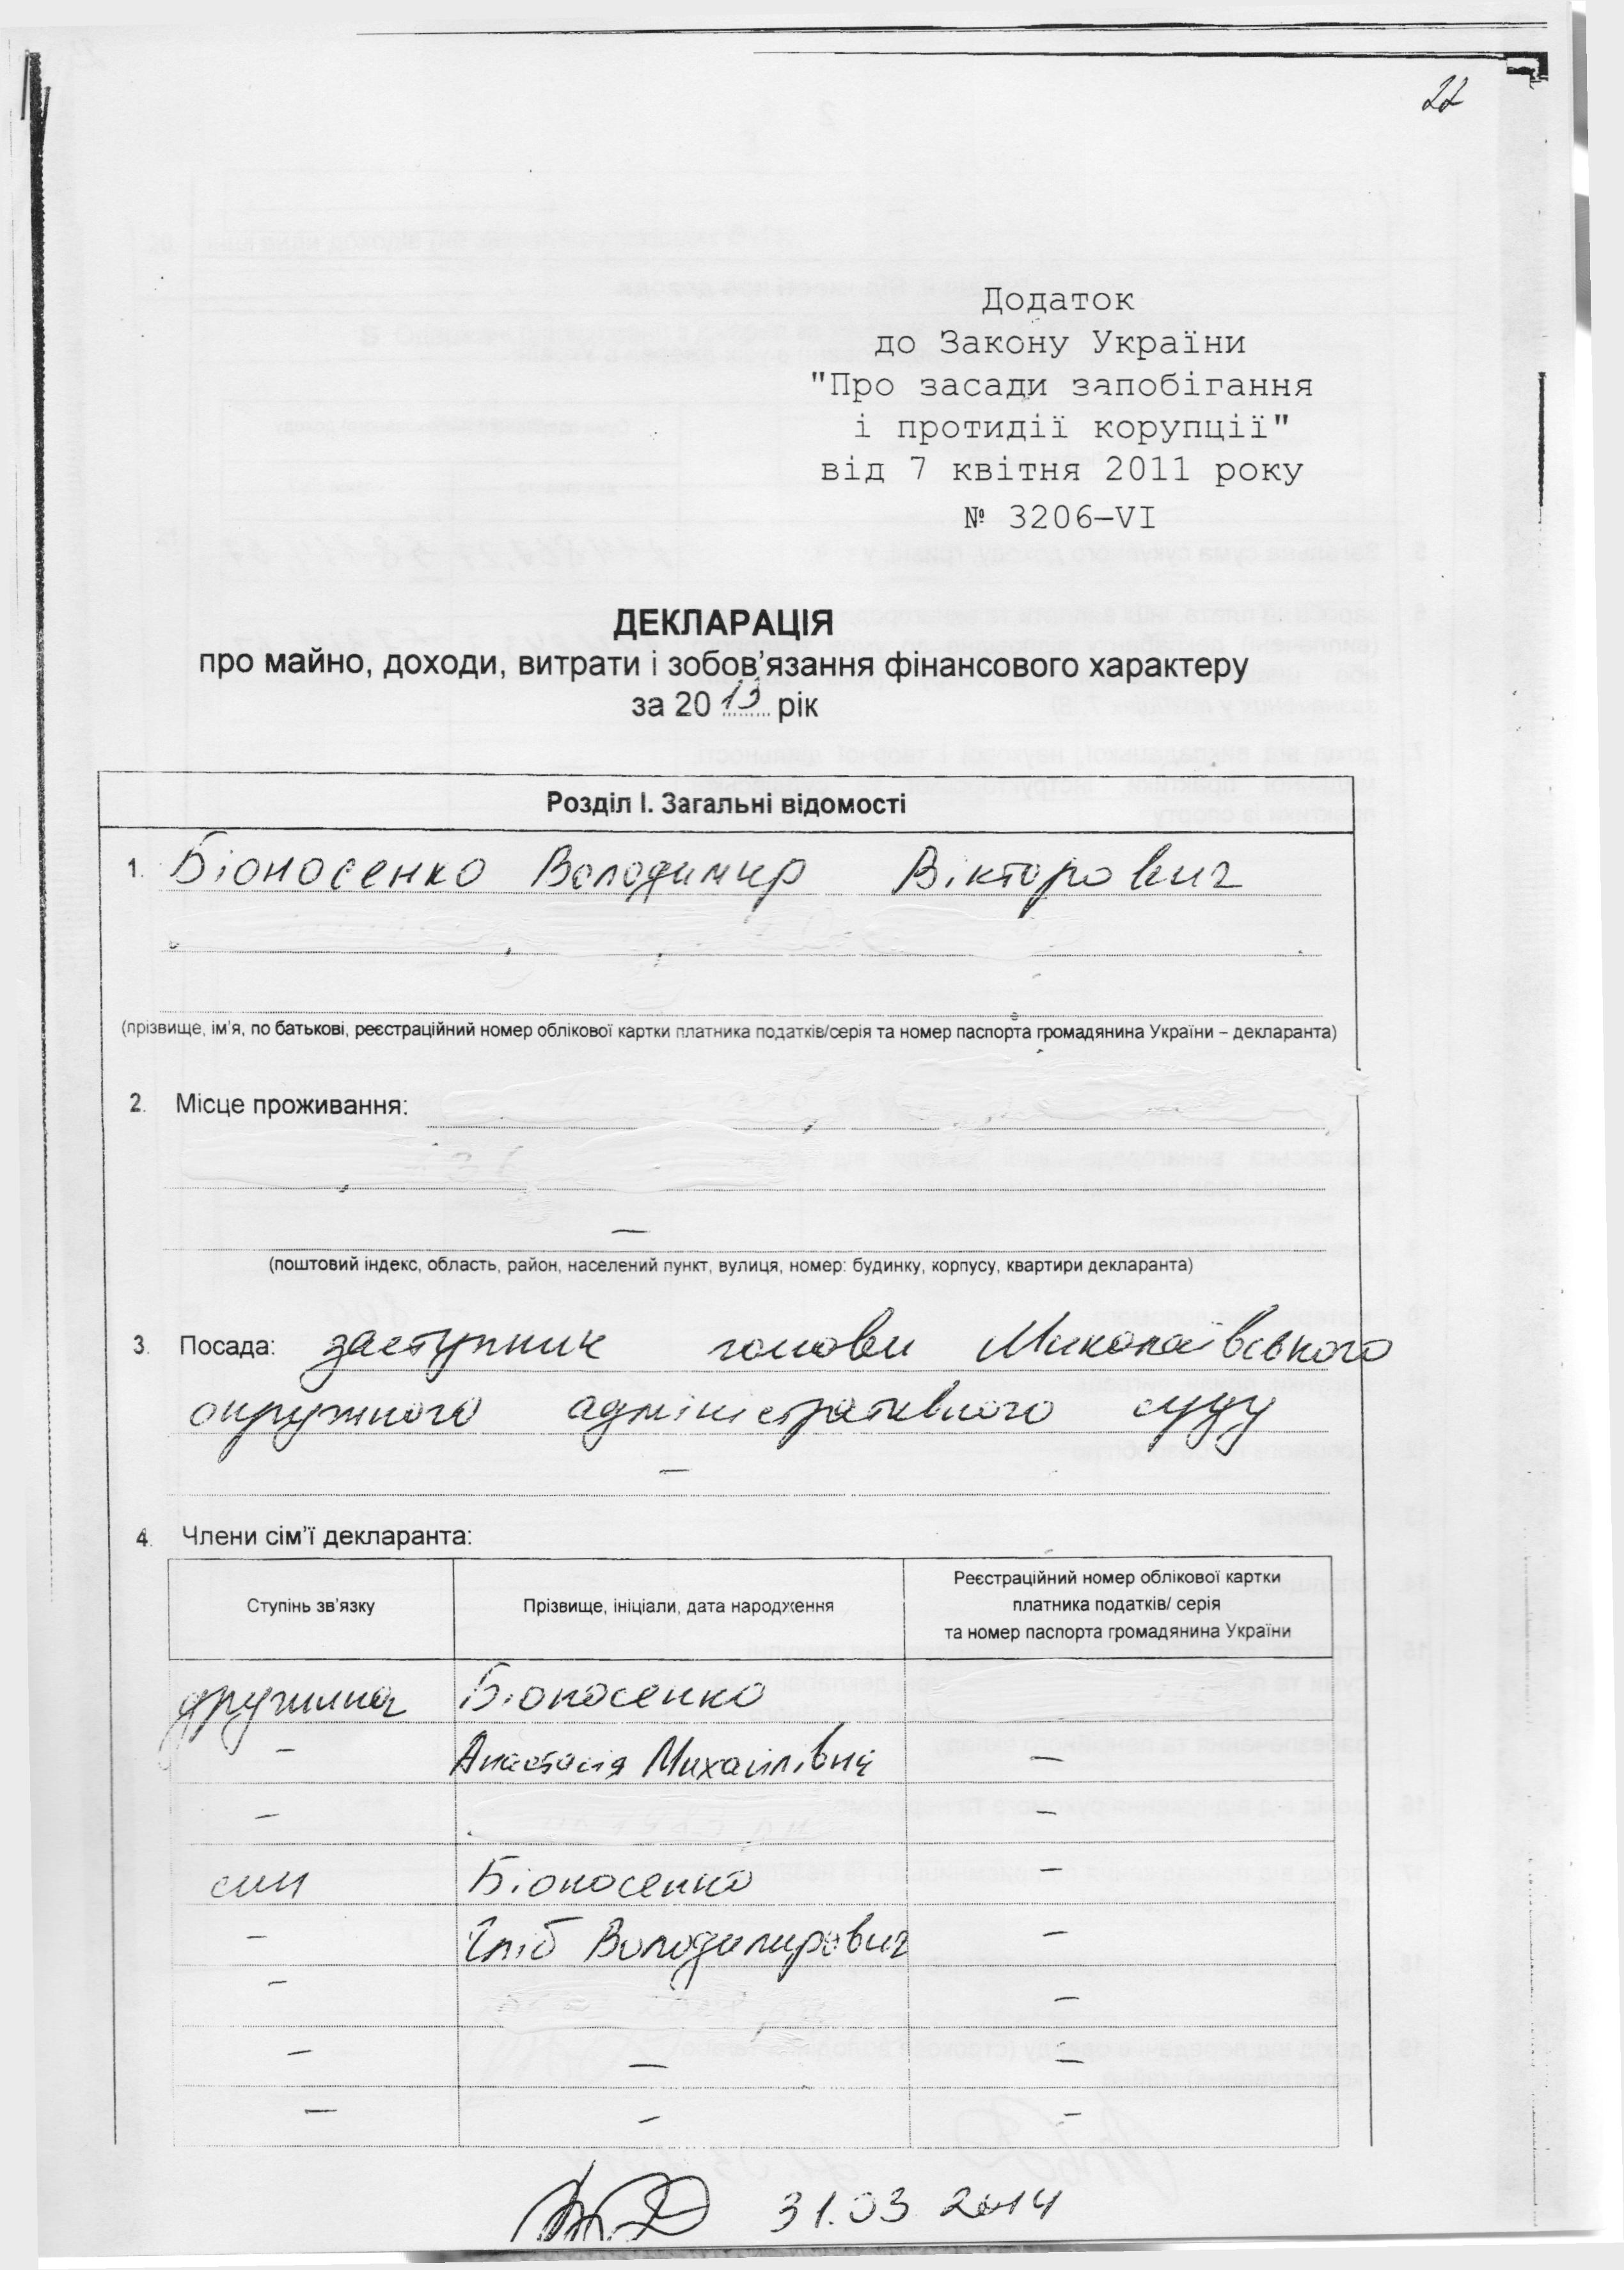 22
Додаток
до Закону України
"Про засади запобігання
і протидії корупції"
від 7 квітня 2011 року
№ 3206–VI
ДЕКЛАРАЦІЯ
про майно, доходи, витрати і зобов’язання фінансового характеру
за 2013 рік
Розділ І. Загальні відомості
1. Біоносенко Володимир Вікторович
(прізвище, ім’я, по батькові, реєстраційний номер облікової картки платника податків/серія та номер паспорта громадянина України – декларанта)
2. Місце проживання:
–
(поштовий індекс, область, район, населений пункт, вулиця, номер: будинку, корпусу, квартири декларанта)
3. Посада: заступник голови Миколаївського
окружного адміністративного суду
–
4. Члени сім’ї декларанта:
Ступінь зв’язку Прізвище, ініціали, дата народження Реєстраційний номер облікової картки
платника податків/ серія
та номер паспорта громадянина України
дружина Біоносенко
– Анастасія Михайлівна –
– –
син Біоносенко –
– Гліб Володимирович –
– –
– – –
– – –
31.03 2014